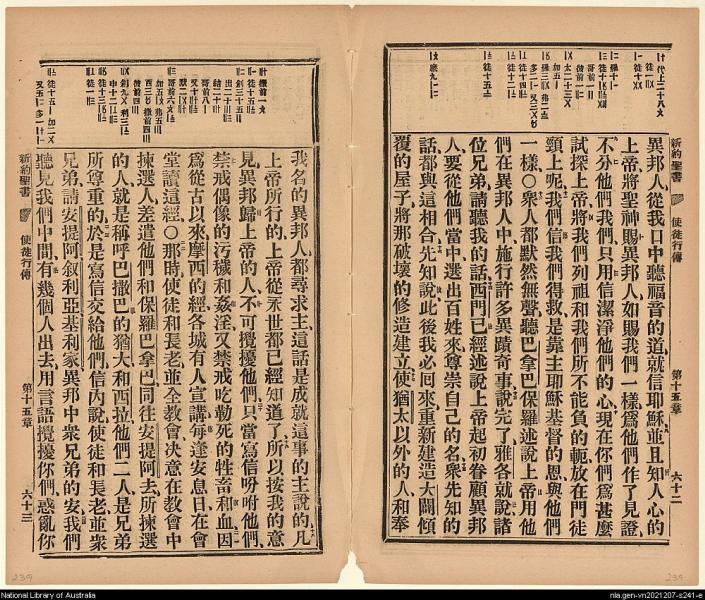 新約聖書 使徒行傳 第十五章 六十二
異邦人從我口中聽福音的道就信耶穌並且知人心的
上帝將聖神賜異邦人如賜我們一樣爲他們作了見證
不分他們我們只用信潔淨他們的心現在你們爲甚麼
試探上帝將我們列祖和我們所不能負的軛放在門徒
頸上呢我們信我們得救是靠主耶穌基督的恩與他們
一樣〇衆人都默然無聲聽巴拿巴保羅述說上帝用他
們在異邦人中施行許多異蹟奇事說完了雅各就說諸
位兄弟請聽我的話西門已經述說上帝起初眷顧異邦
人要從他們當中選出百姓來尊崇自己的名衆先知的
話都與這相合先知說此後我必回來重新建造大闢傾
覆的屋子將那破壞的修造建立使猶太以外的人和奉
我名的異邦人都尋求主這話是成就這事的主說的凡
上帝所行的上帝從永世都已經知道了所以按我的意
見異邦歸上帝的人不可攪擾他們只當寫信吩咐他們
禁戒偶像的污穢和姦淫又禁戒吃勒死的牲畜和血因
爲從古以來摩西的經各城有人宣講每逢安息日在會
堂讀這經〇那時使徒和長老並全教會決意在教會中
揀選人差遣他們和保羅巴拿巴同往安提阿去所揀選
的人就是稱呼巴撒巴的猶大和西拉他們二人是兄弟
所尊重的於是寫信交給他們信內說使徒和長老並衆
兄弟請安提阿叙利亞基利家異邦中衆兄弟的安我們
聽見我們中間有幾個人出去用言語攪擾你們惑亂你
新約聖書 使徒行傳 第十五章 六十三
239
239
National Library of Australia
nla.gen-vn2021207-s241-e